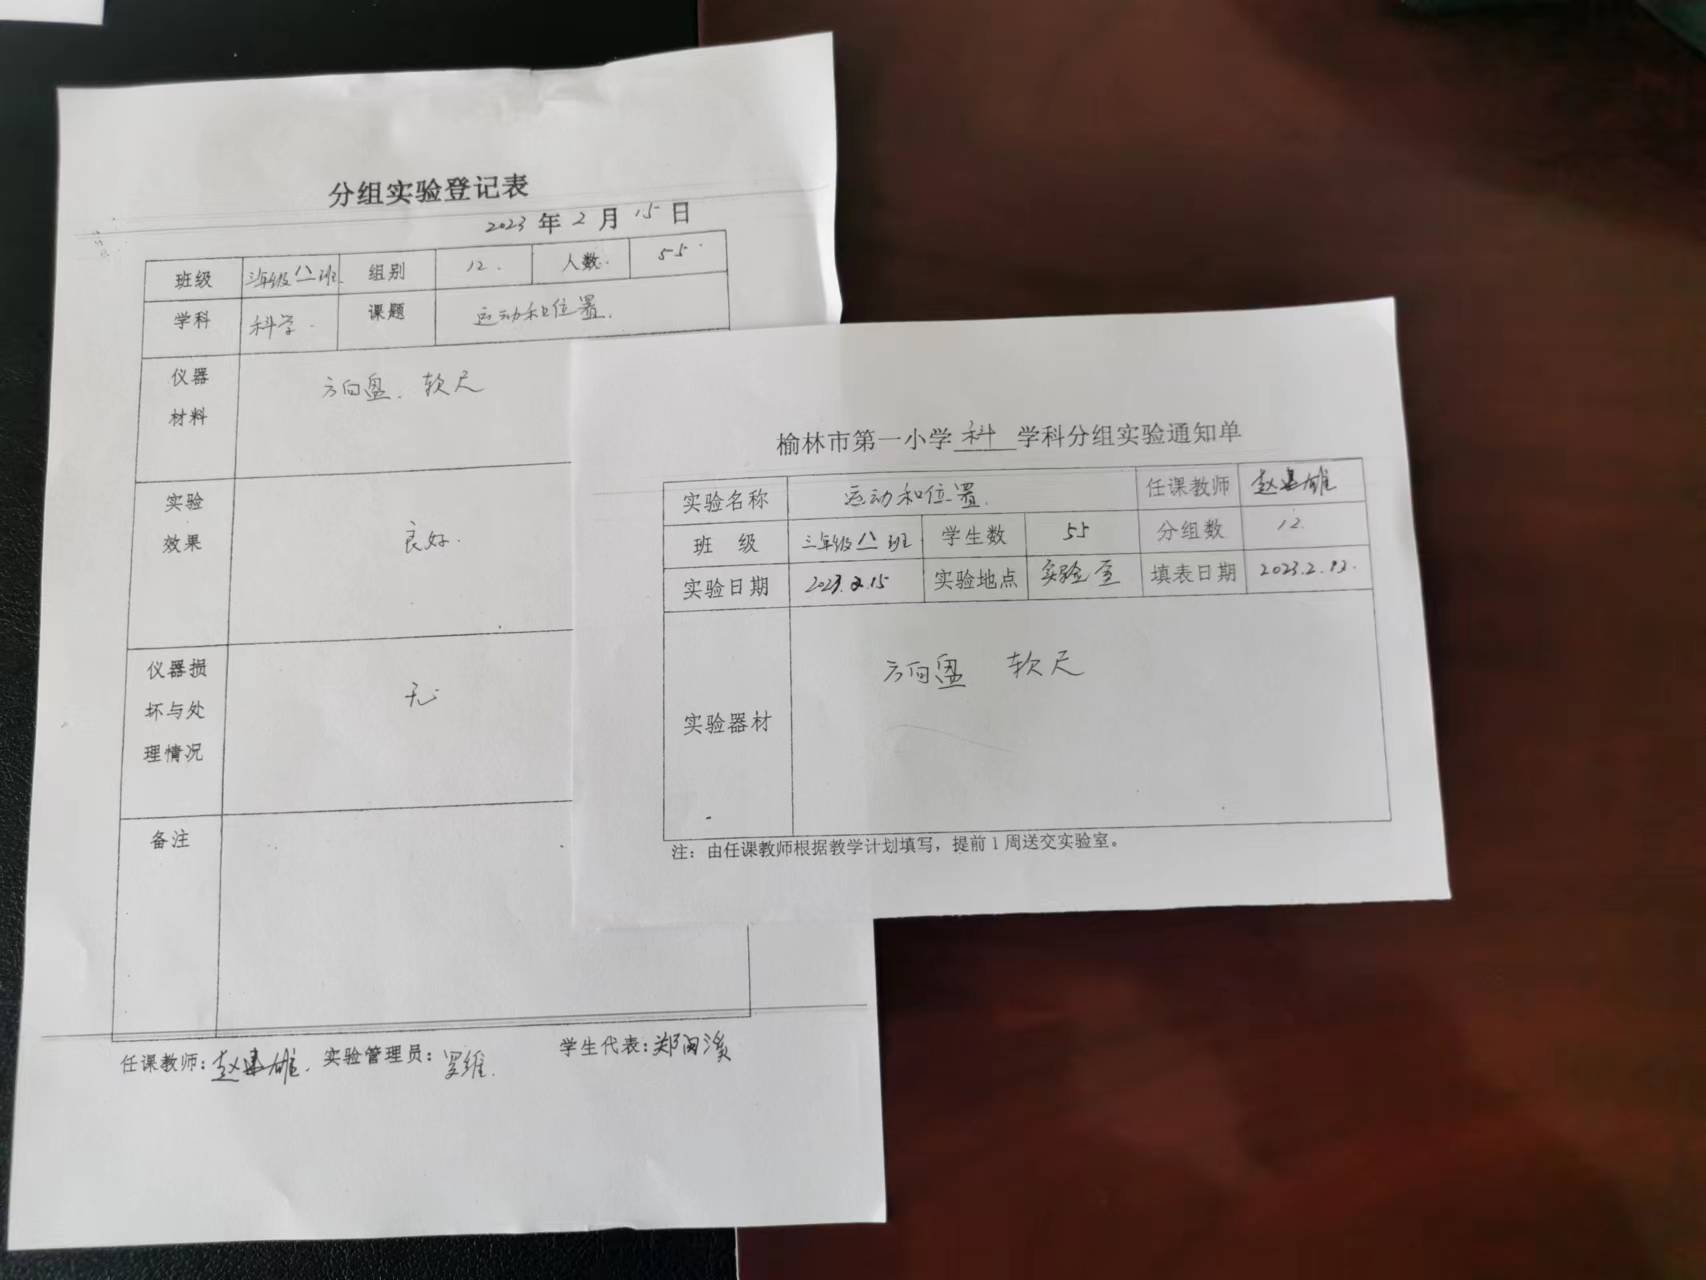 分组实验登记表
2023 年 2 月 15 日
班级 三年级八班 组别 12. 人数 55
学科 科学. 课题 运动和位置.
仪器 方向盘. 软尺
材料
实验
效果 良好.
仪器损
坏与处 无
理情况
备注
任课教师: 赵建雄. 实验管理员: 罗维. 学生代表: 郑
榆林市第一小学 科 学科分组实验通知单
实验名称 运动和位置. 任课教师 赵建雄
班 级 三年级八班 学生数 55 分组数 12.
实验日期 2023.2.15 实验地点 实验室 填表日期 2023.2.12.
方向盘 软尺
实验器材
注：由任课教师根据教学计划填写，提前 1 周送交实验室。